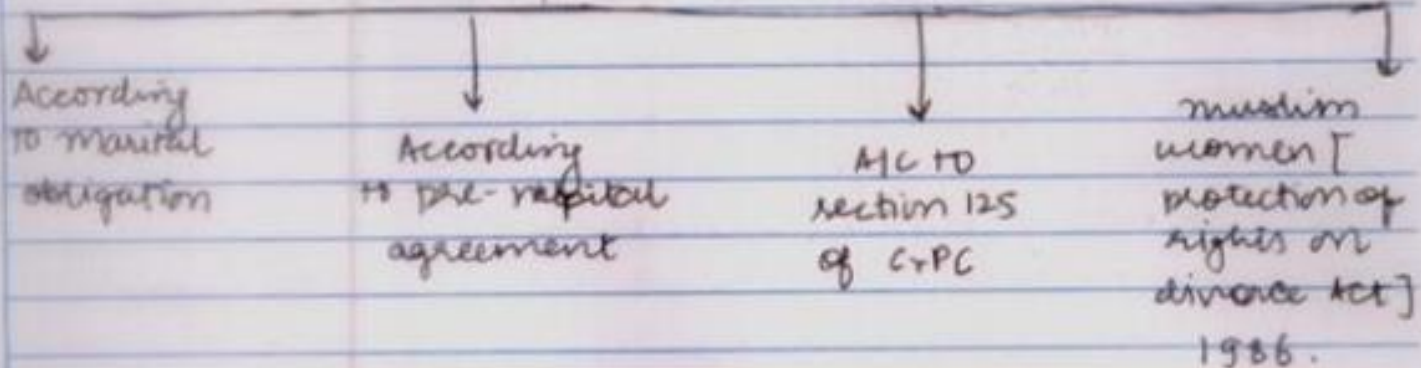 According
to marital
obligation
According
to pre-marital
agreement
A/C to
section 125
of CrPC
muslim
women [
protection of
rights on
divorce Act]
1986.